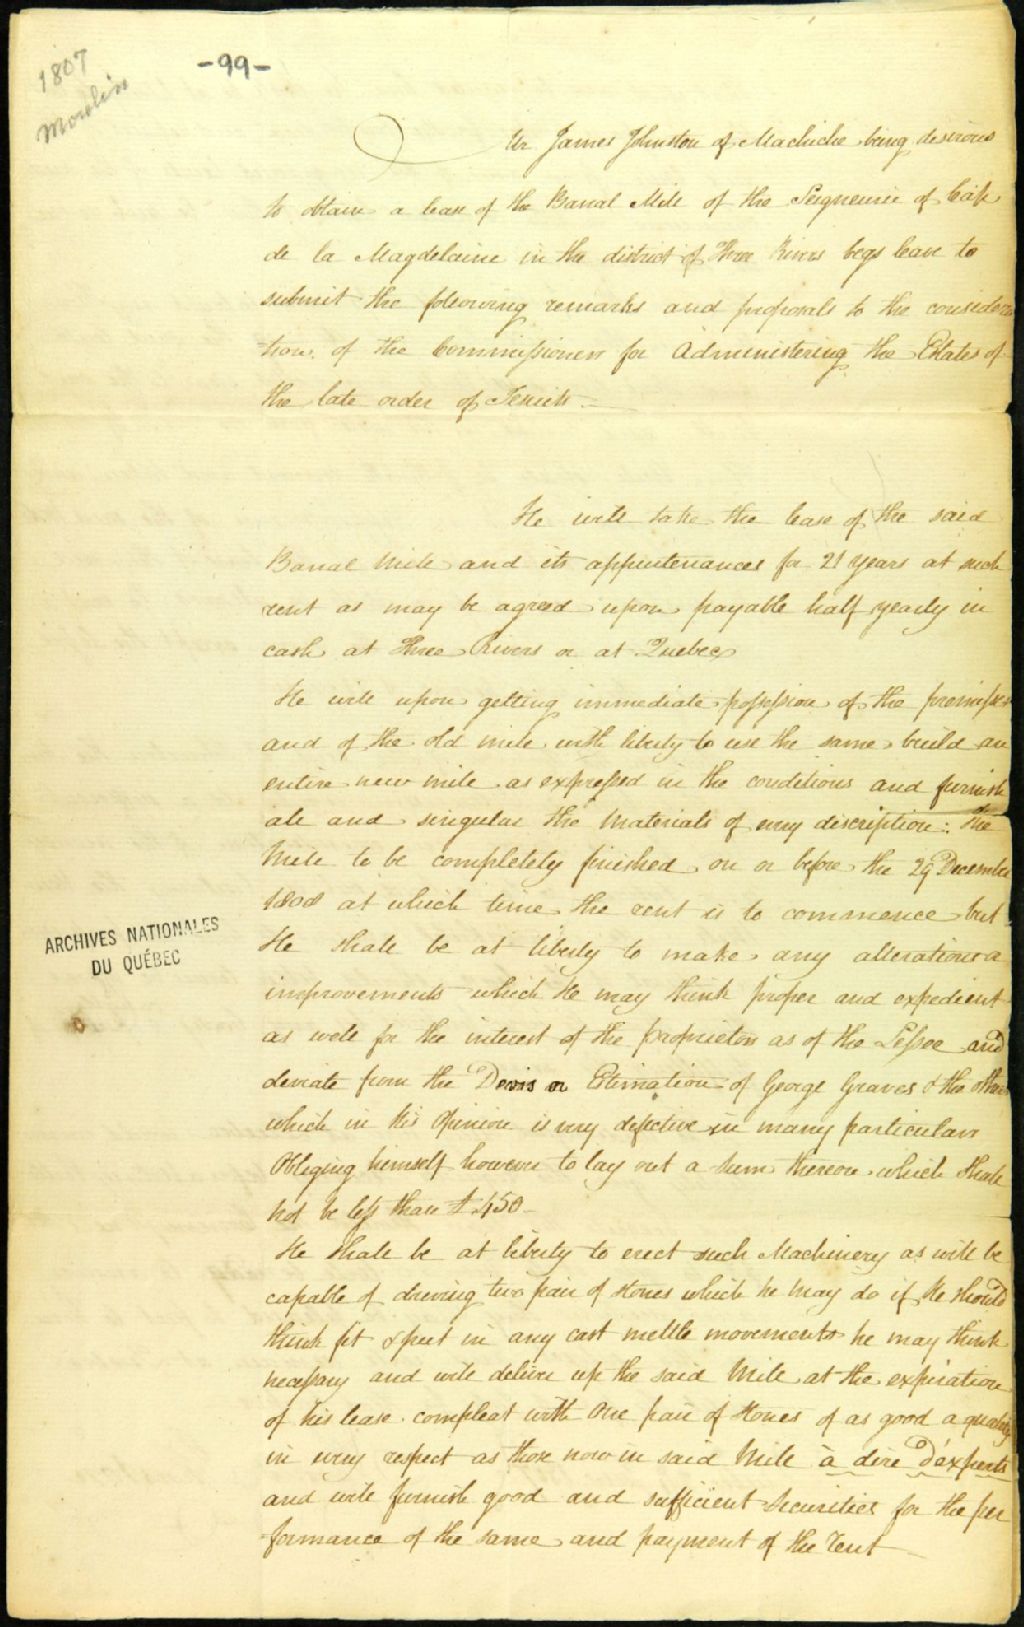 1807
Moulin
-99-
Mr James Johnston of Machiche being desirous
to obtain a lease of the Banal Mill of the Seigneurie of Cap
de la Magdelaine in the district of Three Rivers begs leave to
submit the following remarks and proposals to the considera
tion of the Commissioners for Administering the Estates of
the late order of Jesuits
He will take the lease of the said
Banal Mill and its appurtenances for 21 years at such
rent as may be agreed upon payable half yearly in
cash at Three Rivers or at Quebec
He will upon getting immediate possession of the premisses
and of the old mill with liberty to use the same build an
entire new mill as expressed in the conditions and furnish
all and singular the Materials of every discription: The
Mill to be completely finished on or before the 29 December
1808 at which time the rent is to commence but
He shall be at liberty to make any alterations or
improvements which He may think proper and expedient
as well for the interest of the proprietors as of the Lessee and
deviate from the Devis or Estimation of George Graves & the others
which in His Opinion is very defective in many particulars
Obliging himself however to lay out a Sum thereon which shall
not be less than £450-
He shall be at liberty to erect such Machinery as will be
capable of driving two pair of stones which he may do if He should
think fit & put in any cast mettle movements he may think
necessary and will deliver up the said Mill at the expiration
of his lease compleat with One pair of stones of as good a quality
in every respect as those now in said Mill à dire d'experts
and will furnish good and sufficient Securities for the per
formance of the same and payment of the Rent
ARCHIVES NATIONALES
DU QUÉBEC